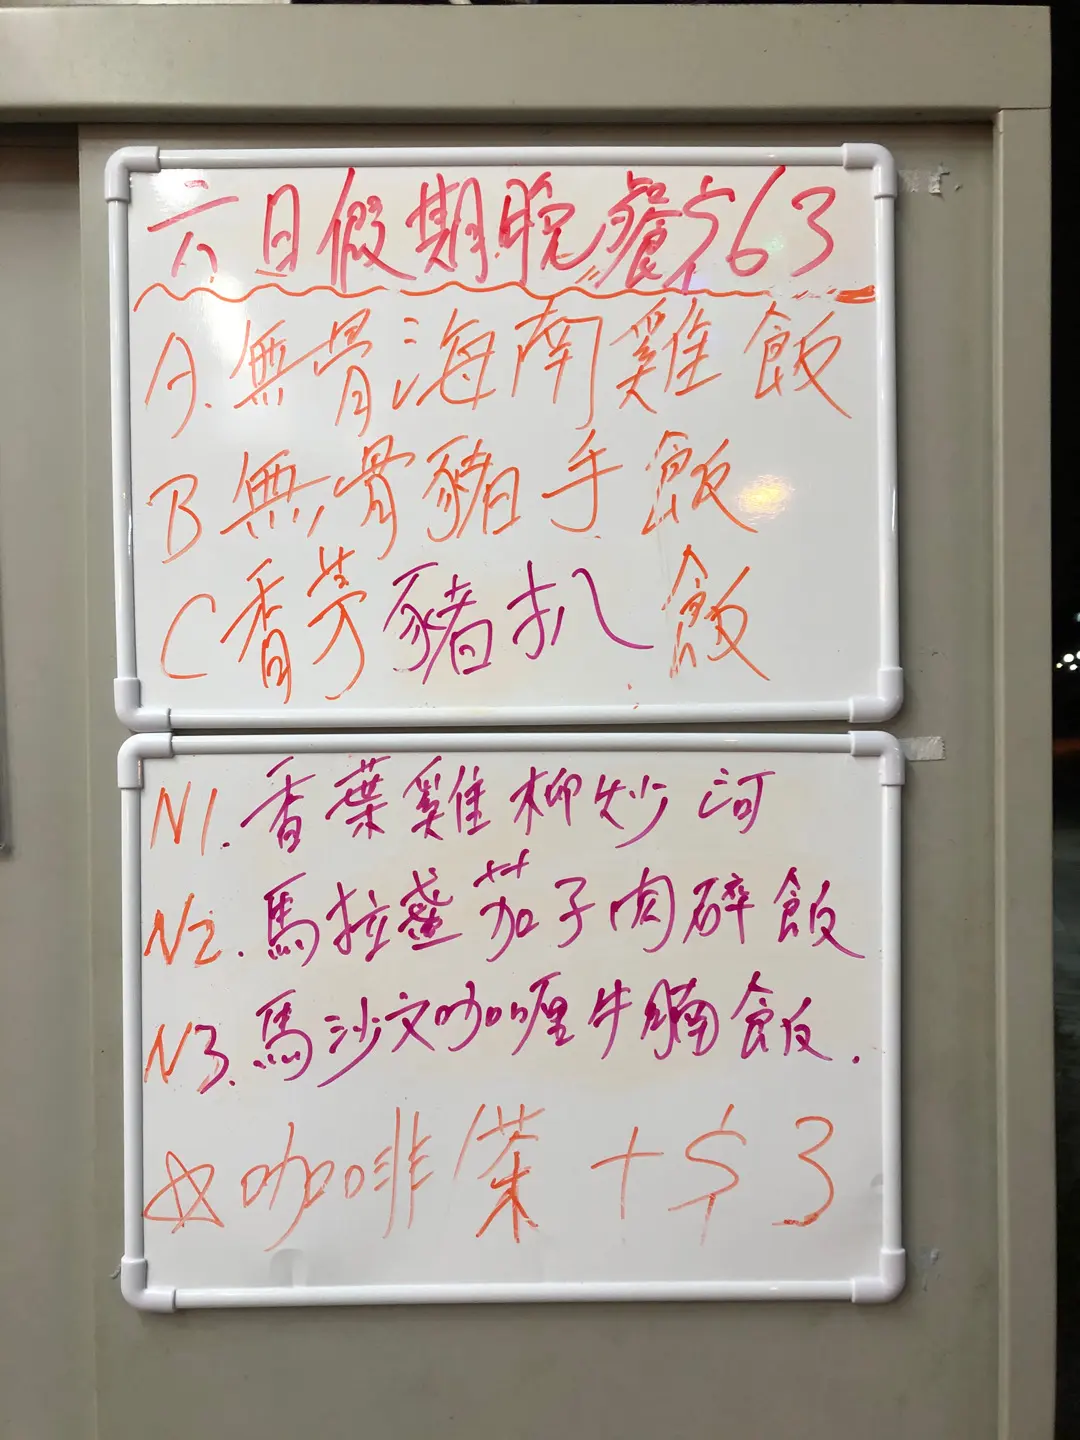 六日假期晚餐$63
A.無骨海南雞飯
B無骨豬手飯
C香芳豬扒飯
N1.香葉雞柳炒河
N2.馬拉盞茄子肉碎飯
N3.馬沙文咖喱牛腩飯.
☆咖啡/茶+$3